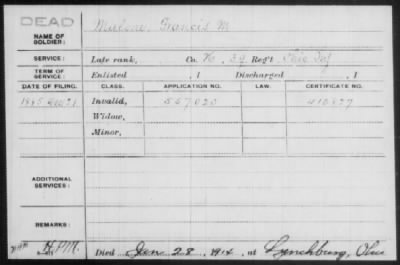 DEAD
NAME OF SOLDIER: Francis M
SERVICE: Late rank, Co. K, 39 Reg't Ohio Inf
TERM OF SERVICE: Enlisted , 1 Discharged , 1
DATE OF FILING. CLASS. APPLICATION NO. LAW. CERTIFICATE NO.
1885 Invalid, 557020
Widow,
Minor,
ADDITIONAL SERVICES:
REMARKS:
Died Jan 28, 1914, at Lynchburg, Ohio